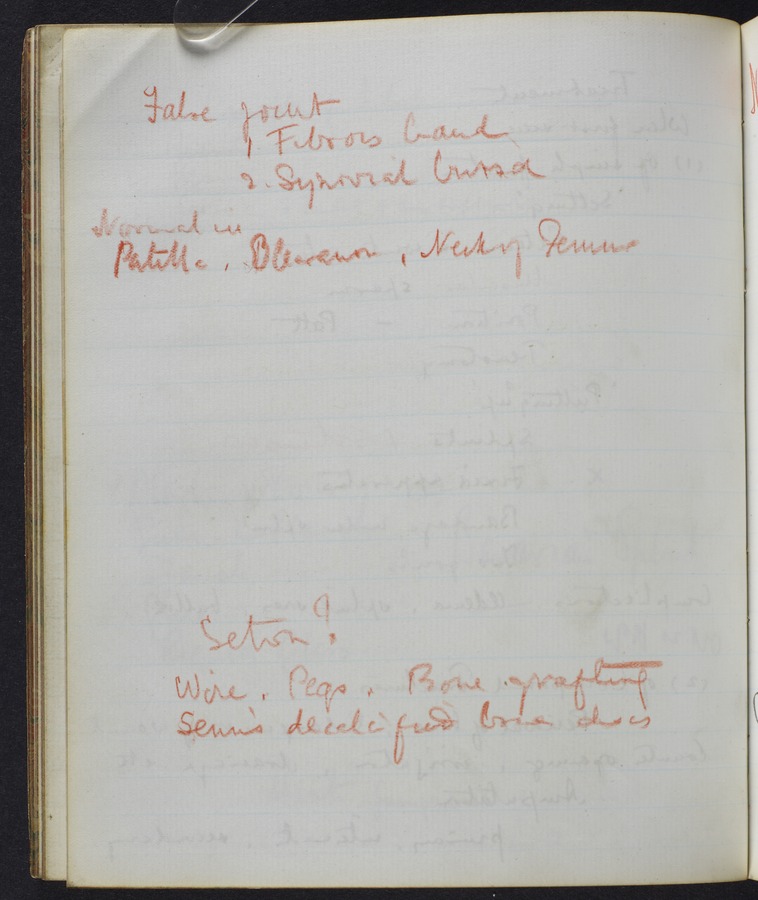 False joint
1 Fibrous band
2. Synovial bursa
Normal in
Patella, Olecranon, Neck of Femur
Seton?
Wire. Pegs. Bone grafting
Senn's decalcified bone discs